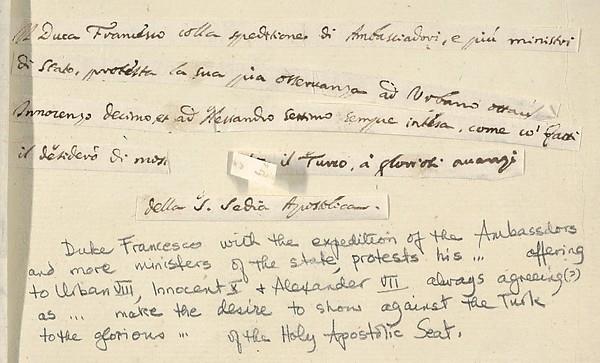 Il Duca Francesco colla speditione di Ambasciadori, e più ministri
di Stato, protesta la sua pia osservanza ad Urbano ottavo
Innocenzo decimo, et ad Alessandro Settimo sempre intesa, come co' fatti
il desiderò di mos il Turco, à gloriosi avanzi
della S. Sedia Apostolica.
Duke Francesco with the expedition of the Ambassdors
and more ministers of the state, protests his ... offering
to Urban VIII, Innocent X + Alexander VII always agreeing (?)
as ... make the desire to show against the Turk
to the glorious ... of the Holy Apostolic Seat.